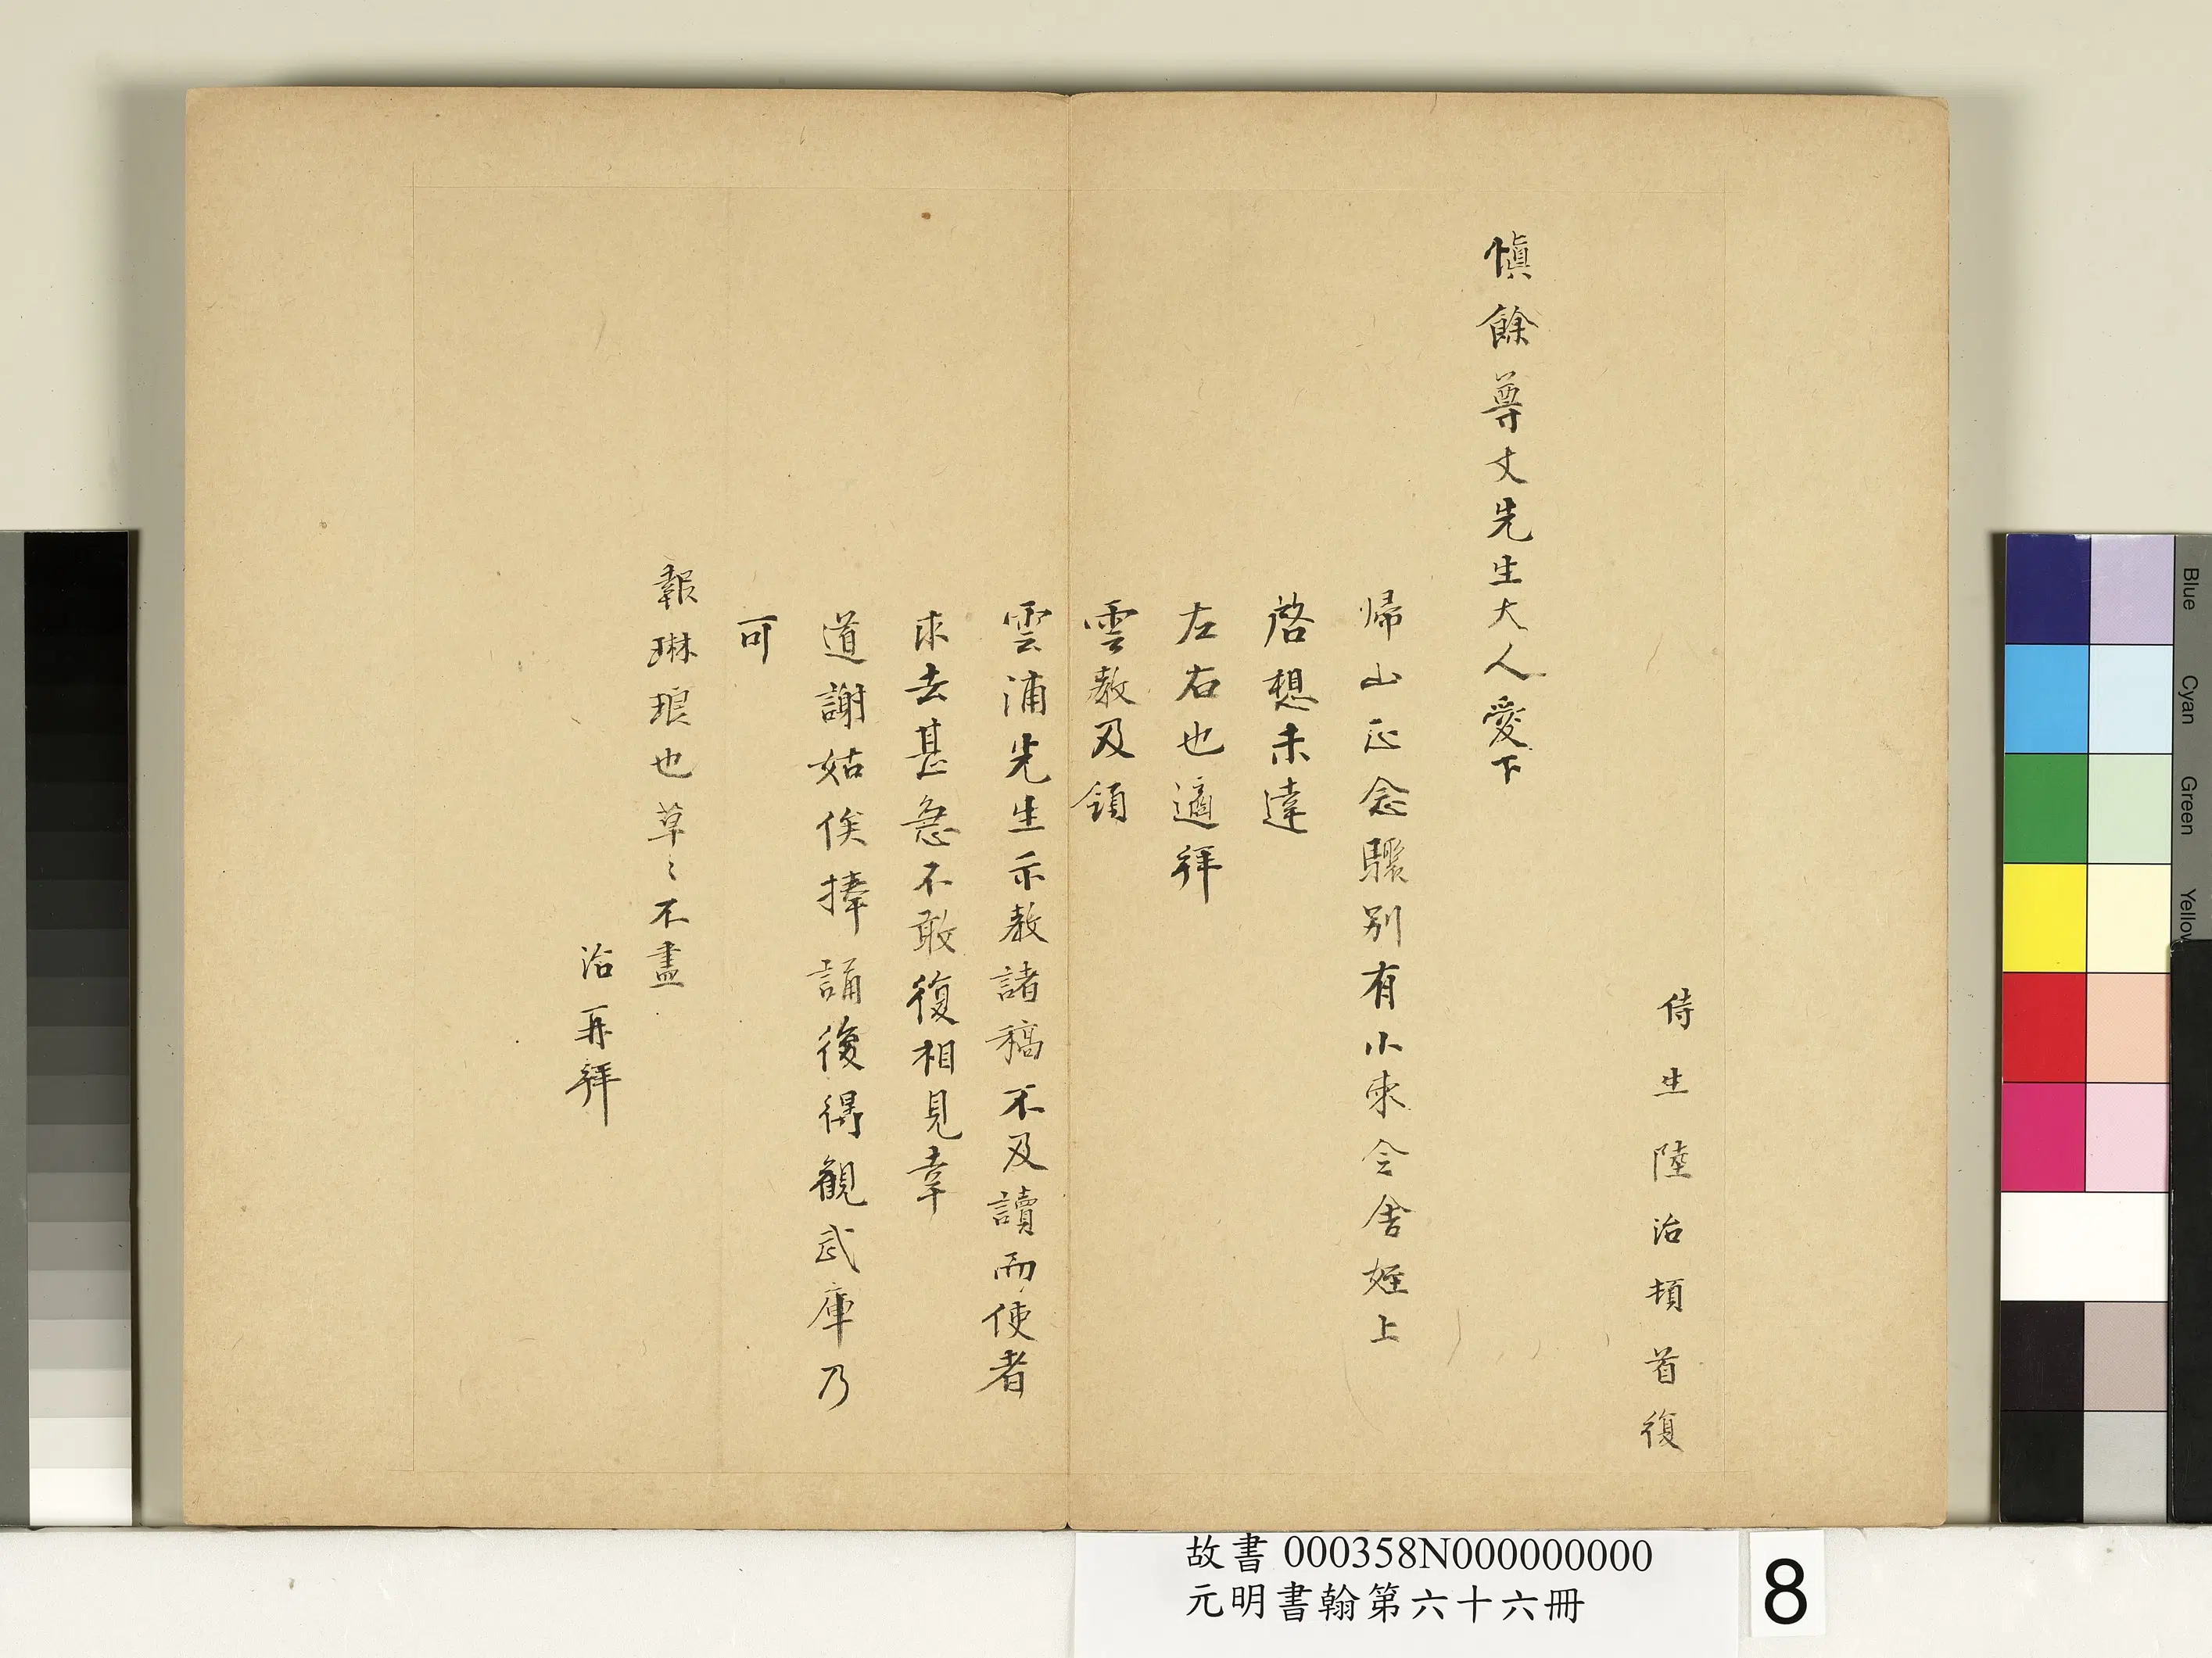 侍生陸治頓首復
慎餘尊丈先生大人愛下
歸山正念驟別有小柬令舍姪上
啓想未達
左右也適拜
雲教及領
雲浦先生示教諸稿不及讀而使者
求去甚急不敢復相見幸
道謝姑俟捧誦後得觀武庫乃
可
報琳琅也草〻不盡
治再拜
故書 000358N000000000
元明書翰第六十六冊
8
Blue
Cyan
Green
Yellow